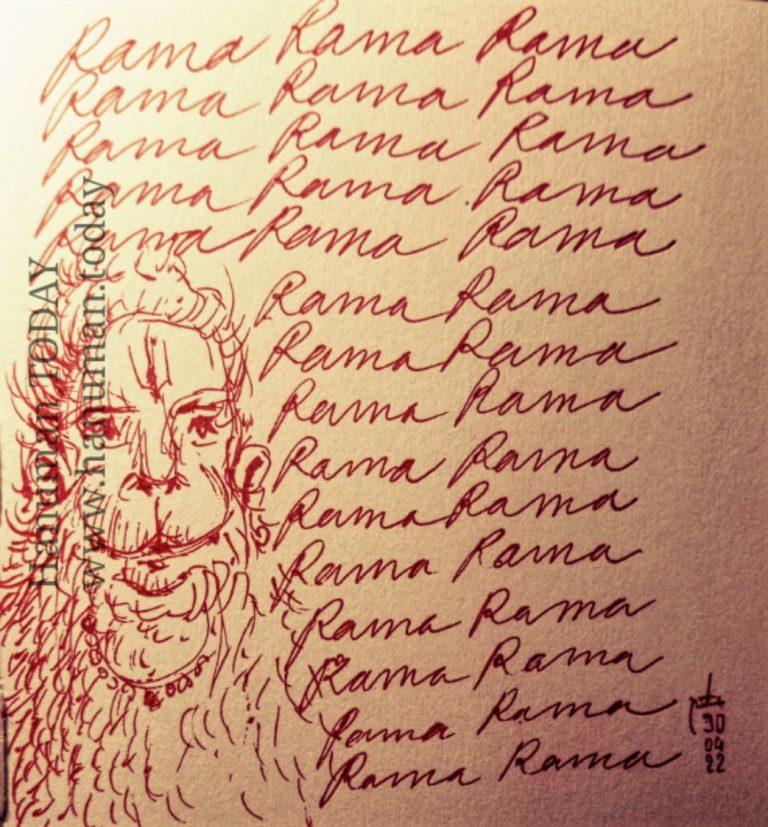 Rama Rama Rama
Rama Rama Rama
Rama Rama Rama
Rama Rama Rama
Rama Rama Rama
Rama Rama
Rama Rama
Rama Rama
Rama Rama
Rama Rama
Rama Rama
Rama Rama
Rama Rama
Rama Rama
Rama Rama
30
04
22
Hanuman TODAY
www.hanuman.today